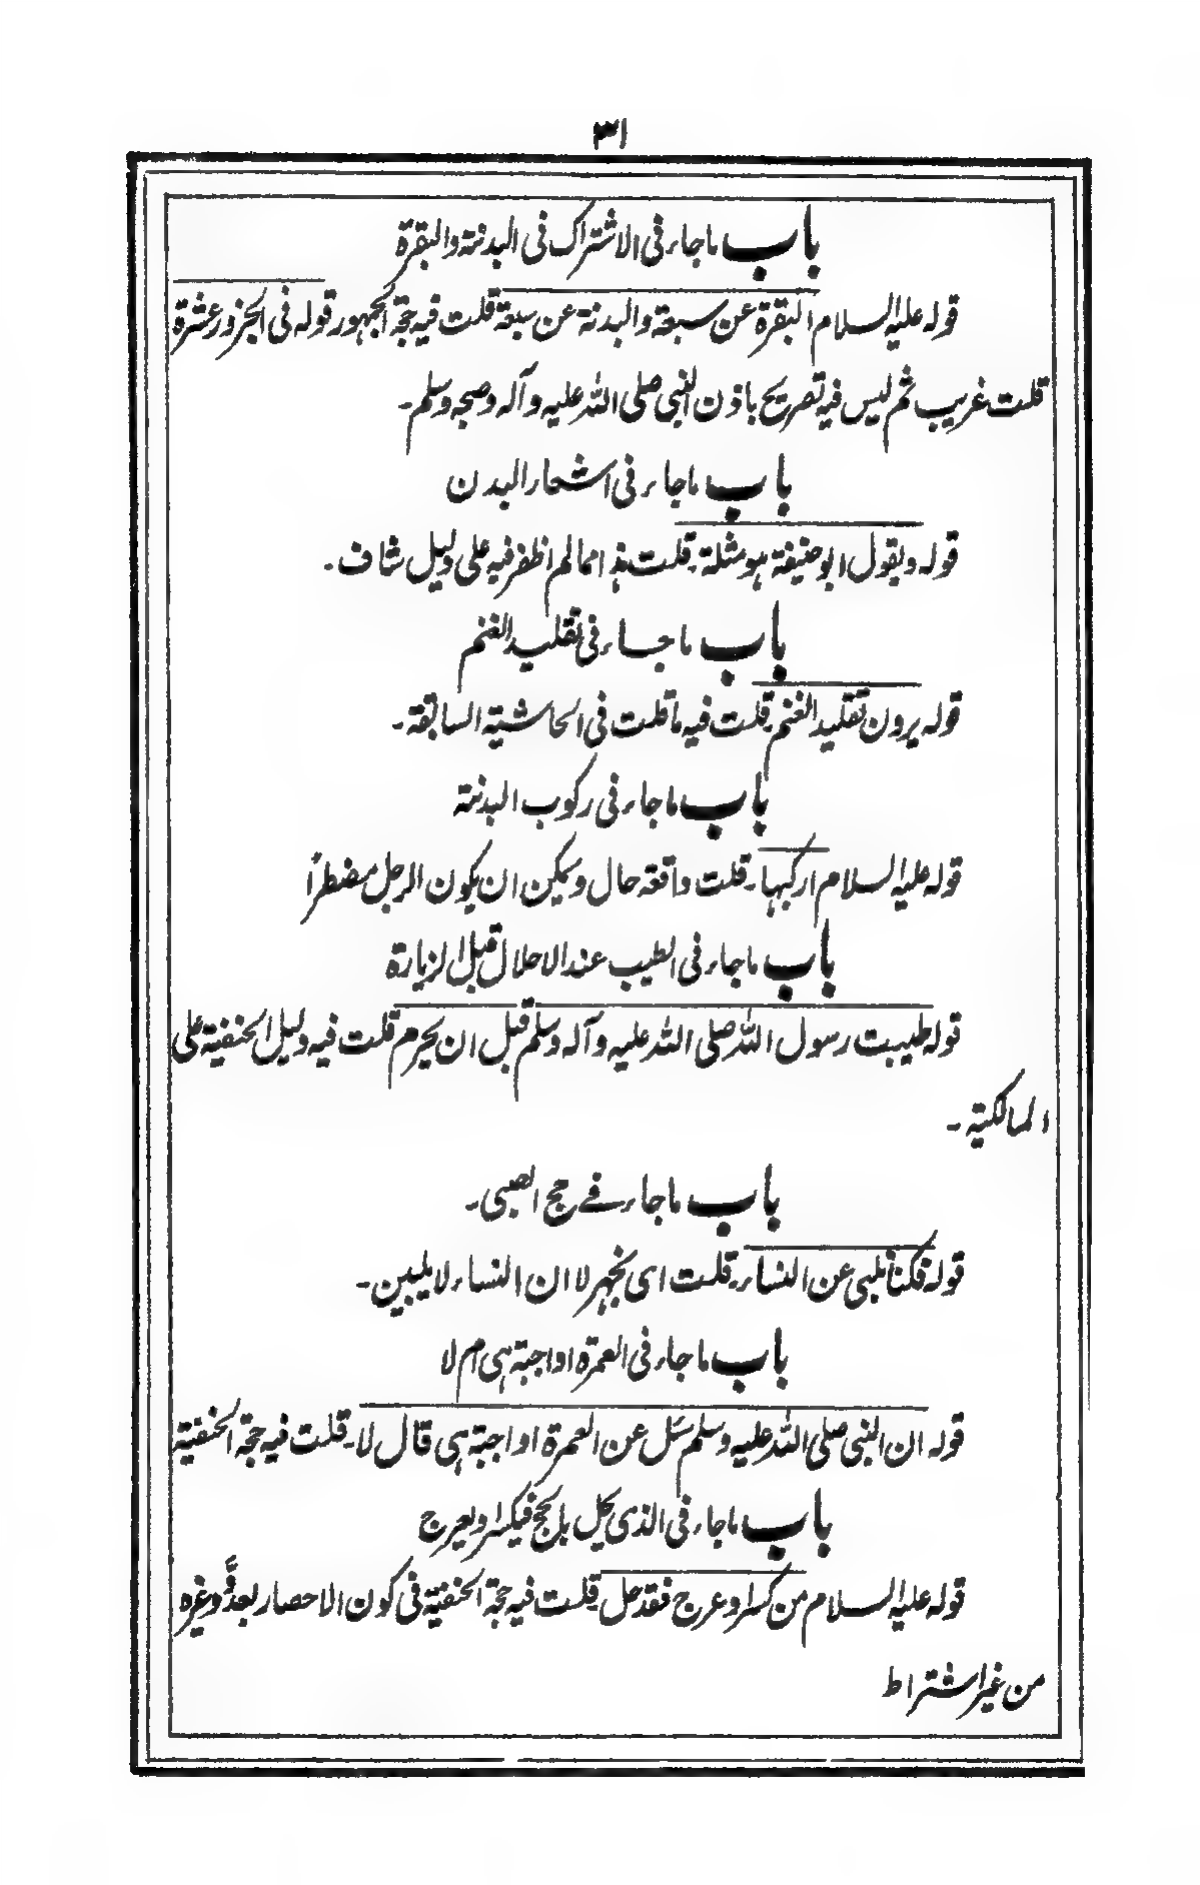 ۳۱
باب ماجاء فی الاشتراک فی البدنة والبقرة
قوله علیه السلام البقرة عن سبعة والبدنة عن سبعة قلت فیه حجة الجمهور قوله فی الجزور عشرة
قلت غریب ثم لیس فیه تصریح باذن النبی صلی الله علیه وآله وصحبه وسلم۔
باب ماجاء فی اشعار البدن
قوله ویقول ابو حنیفة هو مثلة۔ قلت هذا مما لم اظفر فیه علی دلیل شاف۔
باب ماجاء فی تقلید الغنم
قوله یرون تقلید الغنم۔ قلت فیه ما قلت فی الحاشیة السابقة۔
باب ماجاء فی رکوب البدنة
قوله علیه السلام ارکبها۔ قلت واقعة حال ویمکن ان یکون الرجل مضطرًا
باب ماجاء فی الطیب عند الاحلال قبل الزیارة
قوله طیبت رسول الله صلی الله علیه وآله وسلم قبل ان یحرم قلت فیه دلیل الحنفیة علی
المالکیة۔
باب ماجاء فے حج الصبی۔
قوله فکنا نلبی عن النساء۔ قلت ای نجهر لا ان النساء لا یلبین۔
باب ماجاء فی العمرة اواجبة هی ام لا
قوله ان النبی صلی الله علیه وسلم سئل عن العمرة اواجبة هی قال لا۔ قلت فیه حجة الحنفیة
باب ماجاء فی الذی یهل بالحج فیکسر او یعرج
قوله علیه السلام من کسر او عرج فقد حل۔ قلت فیه حجة الحنفیة فی کون الاحصار بعدوٍّ وغیره
من غیر اشتراط